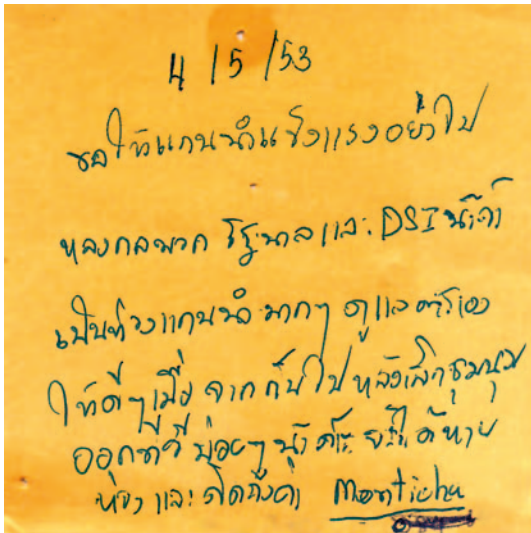 4/5/53
ขอให้แกนนำแข็งแรงอย่าไป
หลงกลพวกรัฐบาลและ DSI น่ะค่ะ
เป็นห่วงแกนนำมากๆ ดูแลตัวเอง
ให้ดีๆ เมื่อจากกันไปหลังเลิกชุมนุม
ออกทีวีบ่อยๆ น่ะค่ะ จะได้หาย
ห่วงและคิดถึงค่ะ Monticha